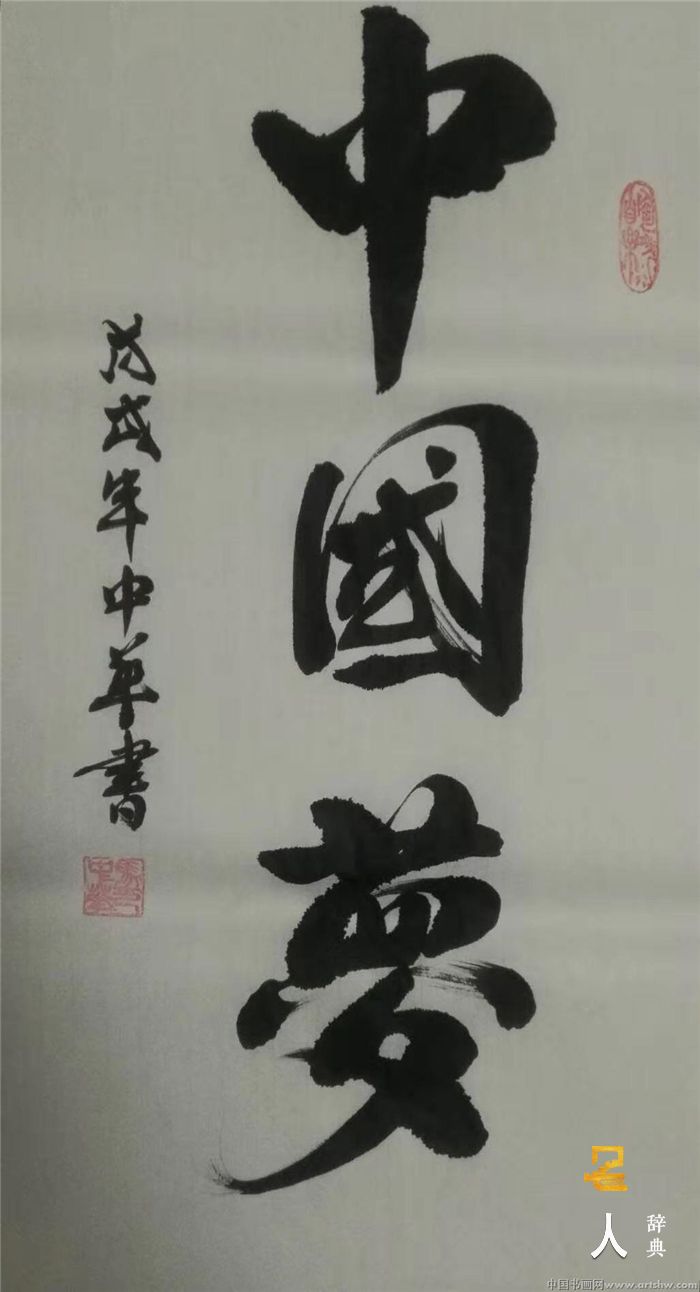 中國夢
戊戌年中华書
名
人
辞典
中国书画网www.artshw.com